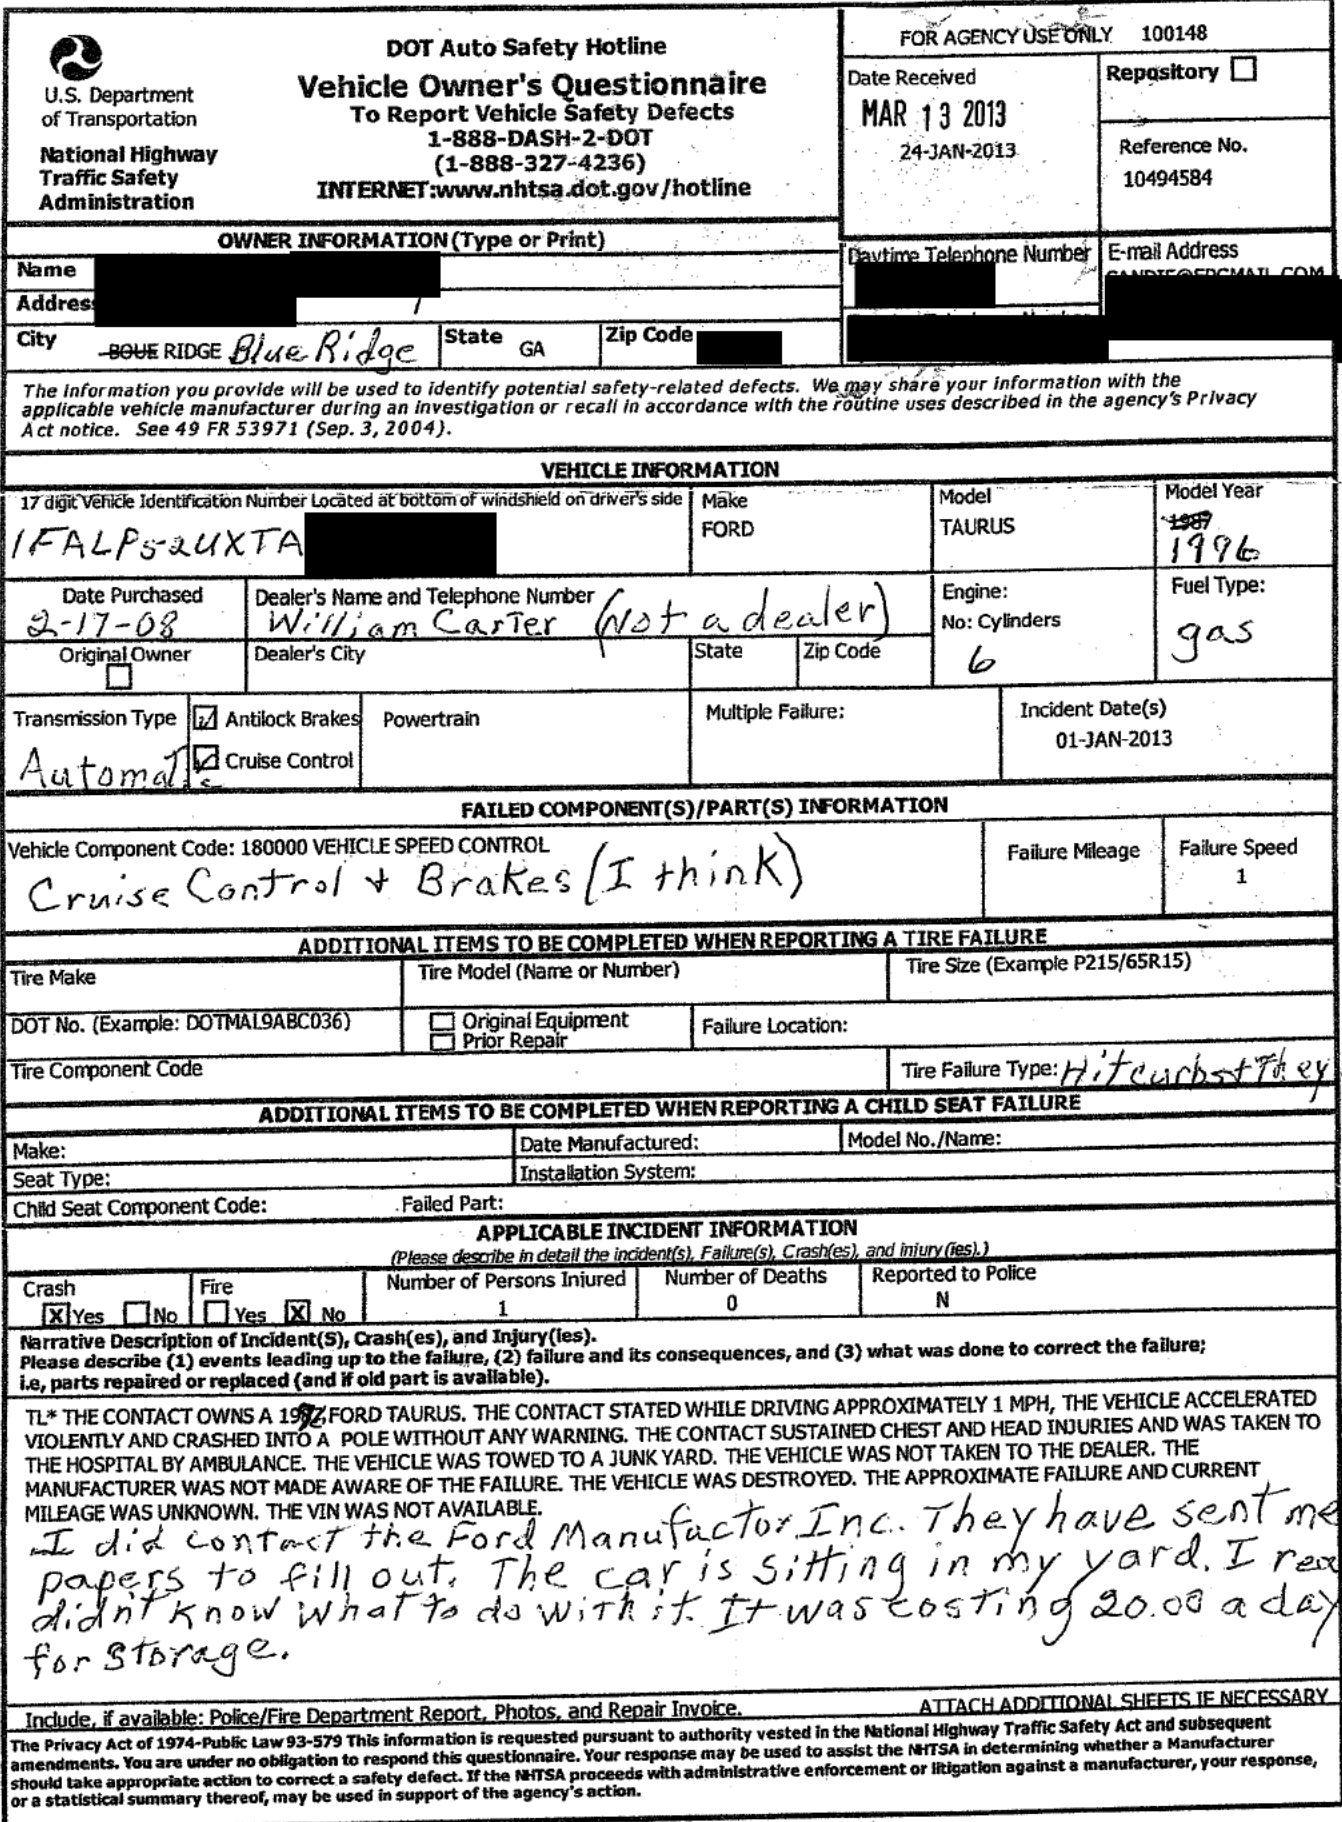 FOR AGENCY USE ONLY 100148
DOT Auto Safety Hotline
Vehicle Owner's Questionnaire
To Report Vehicle Safety Defects
1-888-DASH-2-DOT
(1-888-327-4236)
INTERNET:www.nhtsa.dot.gov/hotline
U.S. Department
of Transportation
National Highway
Traffic Safety
Administration
Date Received
MAR 13 2013
24-JAN-2013
Repository
Reference No.
10494584
OWNER INFORMATION (Type or Print)
Name
Address
Daytime Telephone Number
E-mail Address
City BOUE RIDGE Blue Ridge State GA Zip Code
The information you provide will be used to identify potential safety-related defects. We may share your information with the
applicable vehicle manufacturer during an investigation or recall in accordance with the routine uses described in the agency's Privacy
Act notice. See 49 FR 53971 (Sep. 3, 2004).
VEHICLE INFORMATION
17 digit Vehicle Identification Number Located at bottom of windshield on driver's side
1FALP52UXTA
Make
FORD
Model
TAURUS
Model Year
1987
1996
Date Purchased
2-17-08
Dealer's Name and Telephone Number
William Carter (Not a dealer)
Engine:
No: Cylinders
6
Fuel Type:
gas
Original Owner
Dealer's City
State
Zip Code
Transmission Type
Automatic
Antilock Brakes
Cruise Control
Powertrain
Multiple Failure:
Incident Date(s)
01-JAN-2013
FAILED COMPONENT(S)/PART(S) INFORMATION
Vehicle Component Code: 180000 VEHICLE SPEED CONTROL
Cruise Control + Brakes (I think)
Failure Mileage
Failure Speed
1
ADDITIONAL ITEMS TO BE COMPLETED WHEN REPORTING A TIRE FAILURE
Tire Make
Tire Model (Name or Number)
Tire Size (Example P215/65R15)
DOT No. (Example: DOTMAL9ABC036)
Original Equipment
Prior Repair
Failure Location:
Tire Component Code
Tire Failure Type: Hit curbs + They
ADDITIONAL ITEMS TO BE COMPLETED WHEN REPORTING A CHILD SEAT FAILURE
Make:
Date Manufactured:
Model No./Name:
Seat Type:
Installation System:
Child Seat Component Code:
Failed Part:
APPLICABLE INCIDENT INFORMATION
(Please describe in detail the incident(s), Failure(s), Crash(es), and injury(ies).)
Crash
X Yes No
Fire
Yes X No
Number of Persons Injured
1
Number of Deaths
0
Reported to Police
N
Narrative Description of Incident(S), Crash(es), and Injury(ies).
Please describe (1) events leading up to the failure, (2) failure and its consequences, and (3) what was done to correct the failure;
i.e, parts repaired or replaced (and if old part is available).
TL* THE CONTACT OWNS A FORD TAURUS. THE CONTACT STATED WHILE DRIVING APPROXIMATELY 1 MPH, THE VEHICLE ACCELERATED
VIOLENTLY AND CRASHED INTO A POLE WITHOUT ANY WARNING. THE CONTACT SUSTAINED CHEST AND HEAD INJURIES AND WAS TAKEN TO
THE HOSPITAL BY AMBULANCE. THE VEHICLE WAS TOWED TO A JUNK YARD. THE VEHICLE WAS NOT TAKEN TO THE DEALER. THE
MANUFACTURER WAS NOT MADE AWARE OF THE FAILURE. THE VEHICLE WAS DESTROYED. THE APPROXIMATE FAILURE AND CURRENT
MILEAGE WAS UNKNOWN. THE VIN WAS NOT AVAILABLE.
I did contact the Ford Manufactor Inc. They have sent me
papers to fill out. The car is sitting in my yard. I
didn't know what to do with it. It was costing 20.00 a day
for storage.
Include, if available: Police/Fire Department Report, Photos, and Repair Invoice.
ATTACH ADDITIONAL SHEETS IF NECESSARY
The Privacy Act of 1974-Public Law 93-579 This information is requested pursuant to authority vested in the National Highway Traffic Safety Act and subsequent
amendments. You are under no obligation to respond this questionnaire. Your response may be used to assist the NHTSA in determining whether a Manufacturer
should take appropriate action to correct a safety defect. If the NHTSA proceeds with administrative enforcement or litigation against a manufacturer, your response,
or a statistical summary thereof, may be used in support of the agency's action.